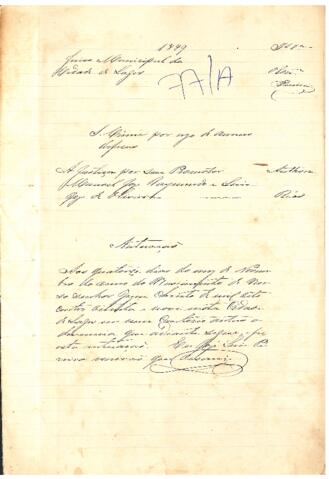 1889
Juizo Municipal da
Cidade de Lages
77/A
S. Crime por uzo de armas
A Justiça por seu Promotor Authora
Manoel José Raymundo e Luis
José de Oliveira Réos
Autuação
Aos quatorze dias do mez de Novem
bro do anno do Nascimento de Nos
so Senhor Jesus Christo de mil oito
centos oitenta e nove nesta Cidade
de Lages em meu Cartorio autuo a
denuncia que adiante segue; fiz
esta autuação. Eu José Luis Pe
reira escrivão que